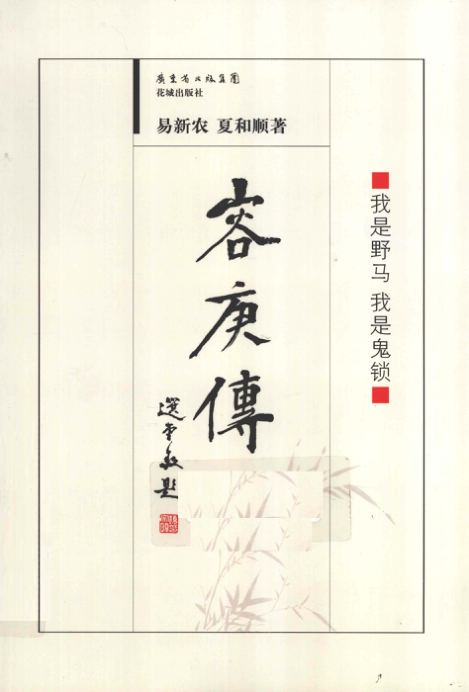 廣東省出版集團
花城出版社
易新农 夏和顺著
容庚傳
選堂敬題
我是野马 我是鬼锁